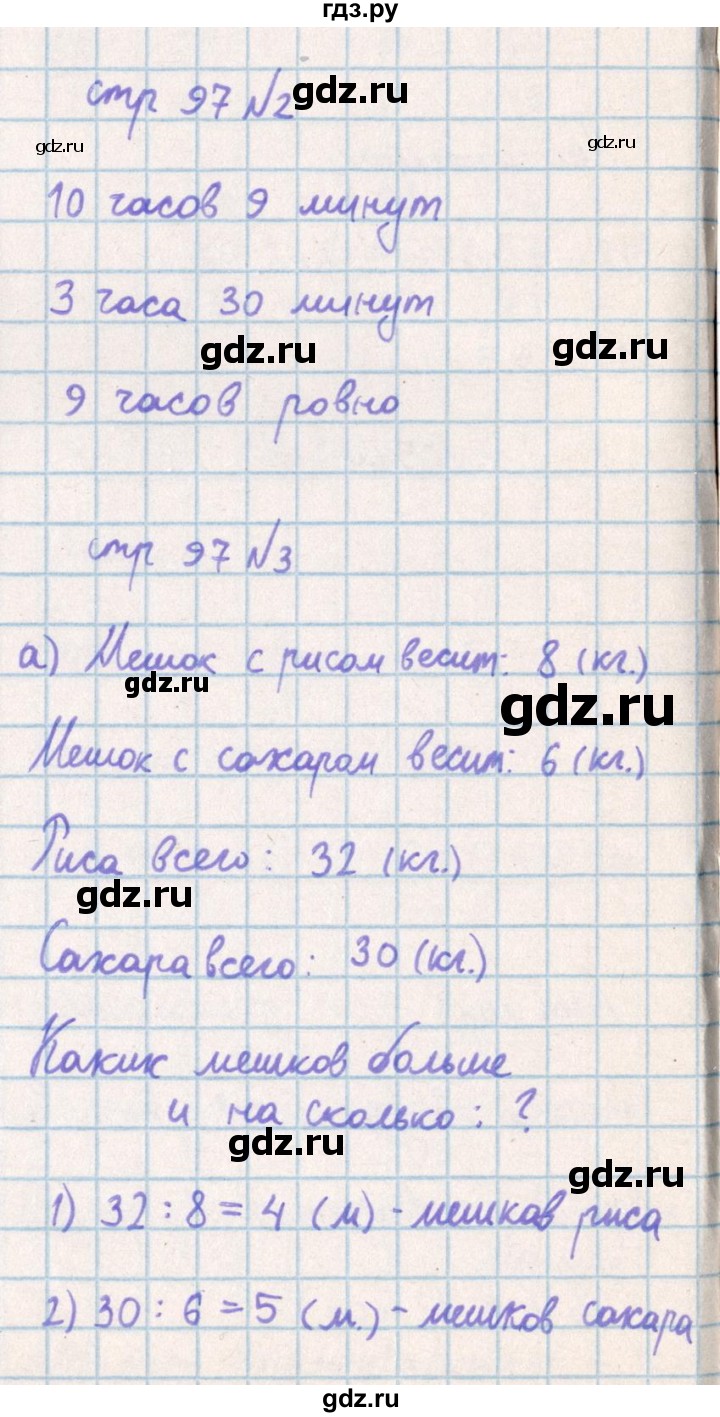 гдз.ру
стр 97 №2
gdz.ru
gdz.ru
gdz.ru
10 часов 9 минут
3 часа 30 минут
gdz.ru
gdz.ru
9 часов ровно
стр 97 №3
а) Мешок с рисом весит: 8 (кг.)
gdz.ru
gdz.ru
Мешок с сахаром весит: 6 (кг.)
Риса всего: 32 (кг.)
gdz.ru
Сахара всего: 30 (кг.)
Каких мешков больше
и на сколько: ?
gdz.ru
gdz.ru
1) 32 : 8 = 4 (м) - мешков риса
2) 30 : 6 = 5 (м.) - мешков сахара
gdz.ru